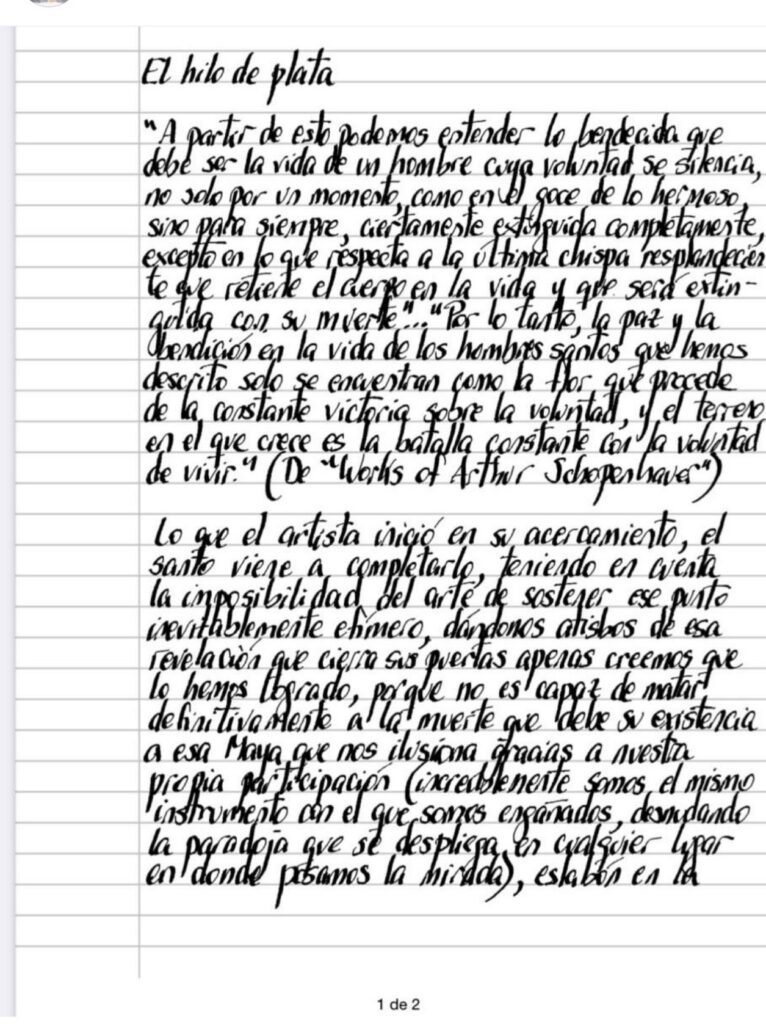 El hilo de plata
"A partir de esto podemos entender lo bendecida que
debe ser la vida de un hombre cuya voluntad se silencia,
no solo por un momento, como en el goce de lo hermoso,
sino para siempre, ciertamente extinguida completamente,
excepto en lo que respecta a la última chispa resplandecien
te que retiene el cuerpo en la vida y que será extin-
guida con su muerte"... "Por lo tanto, la paz y la
bendición en la vida de los hombres santos que hemos
descrito solo se encuentran como la flor que procede
de la constante victoria sobre la voluntad, y el terreno
en el que crece es la batalla constante con la voluntad
de vivir." (De "Works of Arthur Schopenhauer")
Lo que el artista inició en su acercamiento, el
santo viene a completarlo, teniendo en cuenta
la imposibilidad del arte de sostener ese punto
inevitablemente efímero, dándonos atisbos de esa
revelación que cierra sus puertas apenas creemos que
lo hemos logrado, porque no es capaz de matar
definitivamente a la muerte que debe su existencia
a esa Maya que nos ilusiona gracias a nuestra
propia participación (increíblemente somos el mismo
instrumento con el que somos engañados, desnudando
la paradoja que se despliega en cualquier lugar
en donde posamos la mirada), eslabón en la
1 de 2